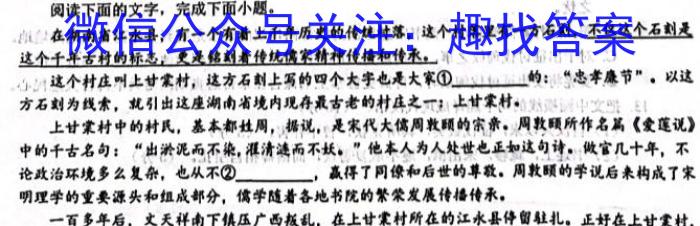 阅读下面的文字，完成下面小题。
在湖南省江永县，有一个有着上千年历史的传统村落。这个村里有一方石刻，不仅这个石刻是
微信公众号关注：趣找答案
这个千年古村的标志，更是铭刻着传统儒家精神传播和传承。
这个村庄叫上甘棠村，这方石刻上写的四个大字也是大家①________的：“忠孝廉节”。以这
方石刻为线索，就引出这座湖南省境内现存最古老的村庄之一：上甘棠村。
上甘棠村中的村民，基本都姓周，据说，是宋代大儒周敦颐的宗亲。周敦颐所作名篇《爱莲说》
中的千古名句：“出淤泥而不染，濯清涟而不妖。”他本人为人处世也正如这句诗。做官几十年，不
论政治环境多么复杂，也从不②________，赢得了同僚和后世的尊敬。周敦颐的学说后来构成了宋
明理学的重要源头和组成部分，儒学随着各地书院的繁荣发展传播传承。
一百多年后，文天祥南下镇压广西叛乱，在上甘棠村所在的江永县停留驻扎。正好在上甘棠村，